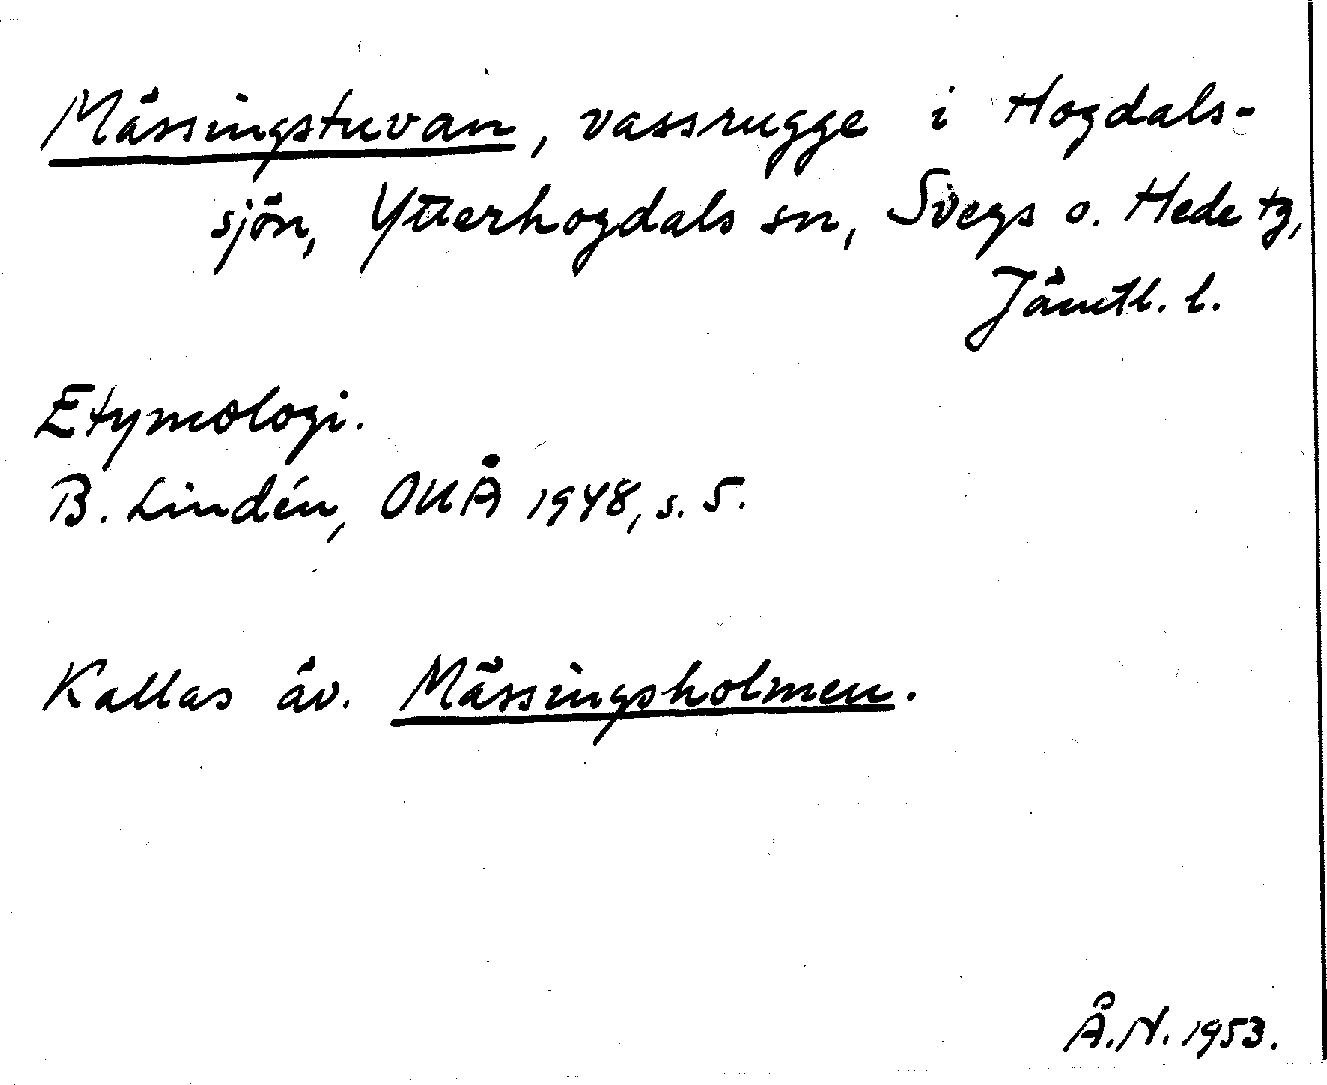 Mässingstuvan, vassrugge i Hogdals-
sjön, Ytterhogdals sn, Svegs o. Hede tg,
Jämtl. l.
Etymologi.
B. Lindén, OUÅ 1948, s. 5.
Kallas äv. Mässingsholmen.
Å.N. 1953.